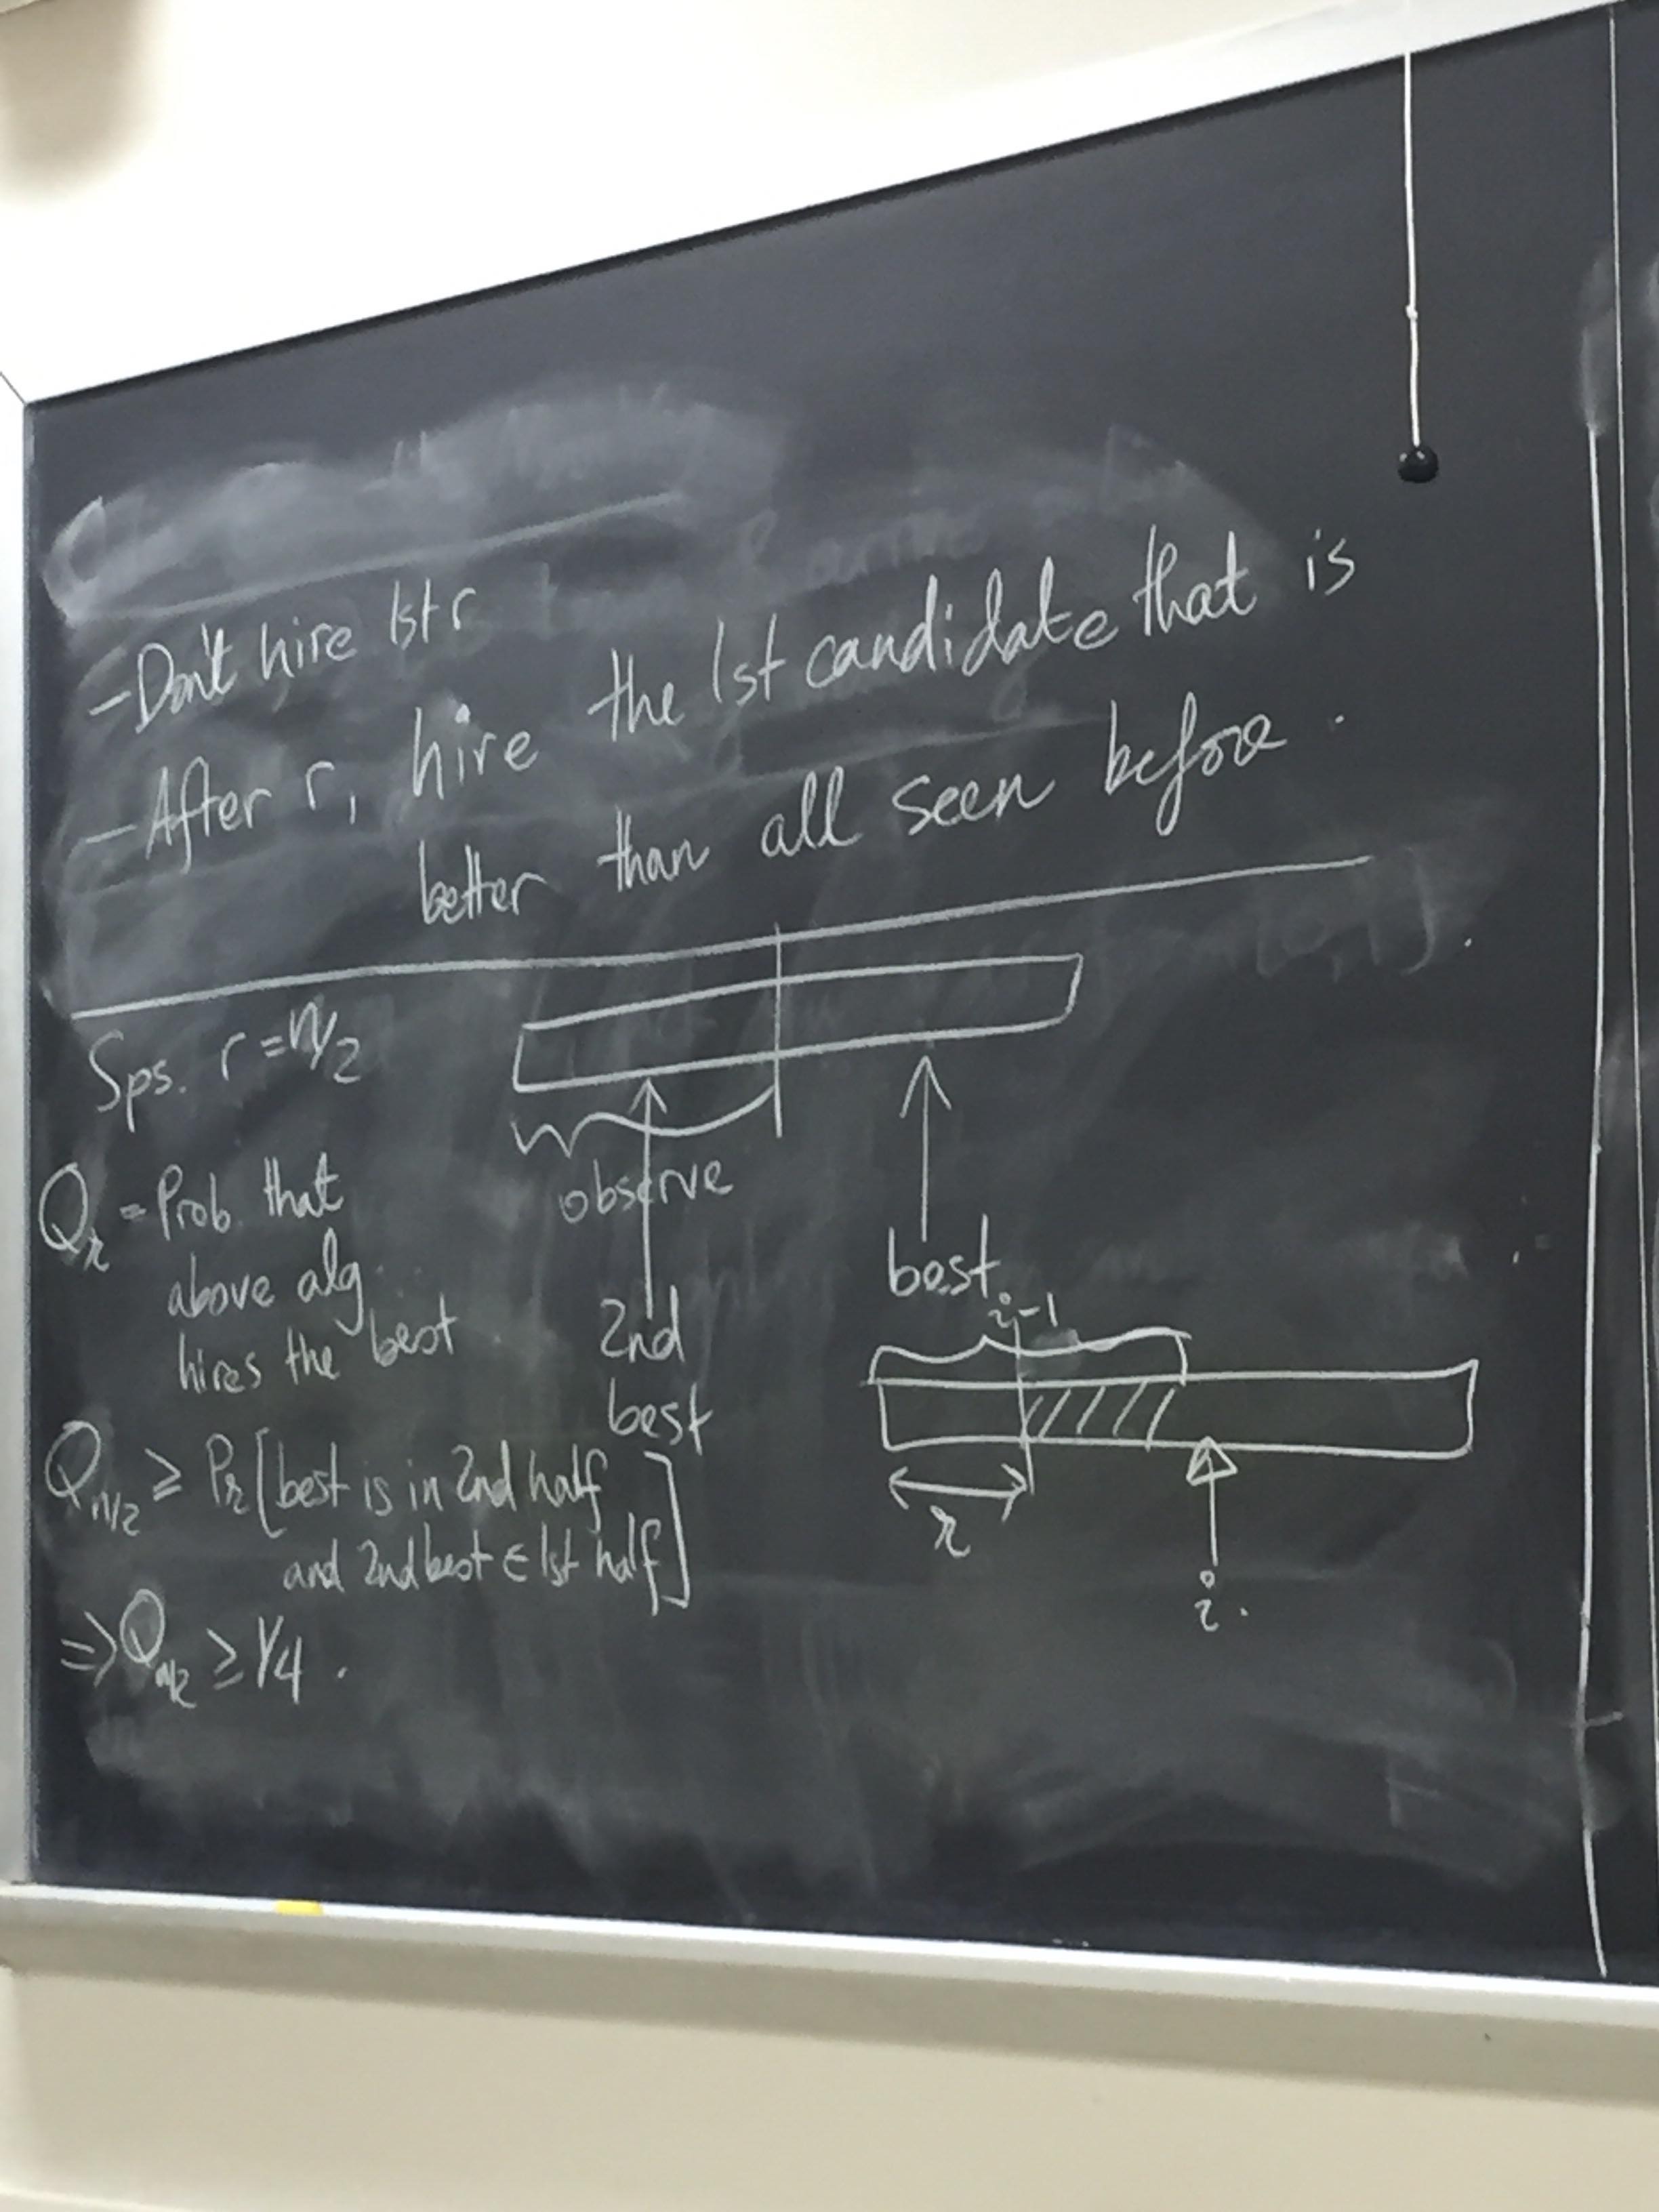 -Don't hire 1st r
-After r, hire the 1st candidate that is
better than all seen before.
Sps. r=n/2
observe
2nd
best
best
Qr = Prob. that
above alg.
hires the best
Qn/2 ≥ Pr[best is in 2nd half
and 2nd best ∈ 1st half]
⇒ Qn/2 ≥ 1/4.
i-1
r
i.